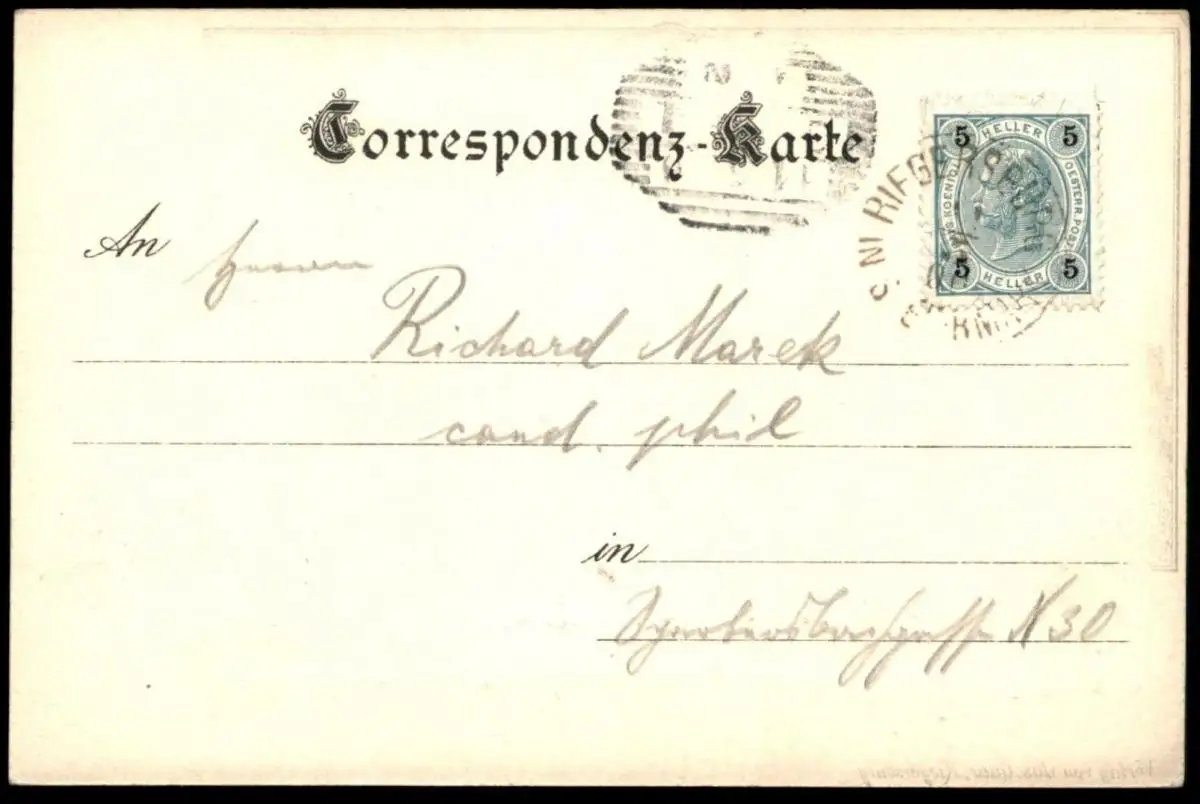 Correspondenz-Karte
5 HELLER 5
KOENIGL. OESTERR. POST
5 HELLER 5
RIEGERSBURG
An Herrn
Richard Marek
cand. phil
in
N 30